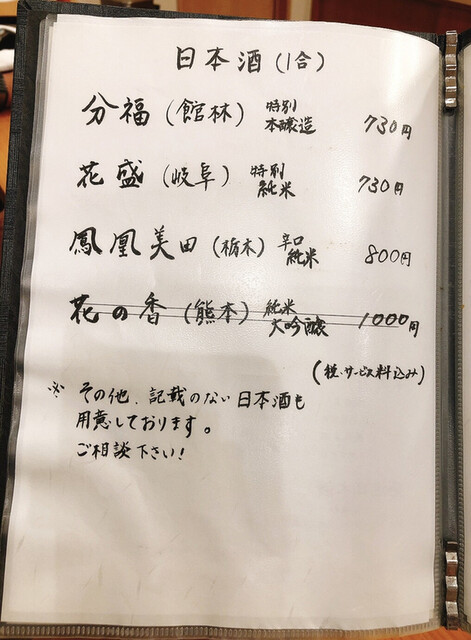 日本酒(1合)
分福(館林) 特別本醸造 730円
花盛(岐阜) 特別純米 730円
鳳凰美田(栃木) 辛口純米 800円
花の香(熊本) 純米大吟醸 1000円
(税・サービス料込み)
※ その他、記載のない日本酒も
用意しております。
ご相談下さい!